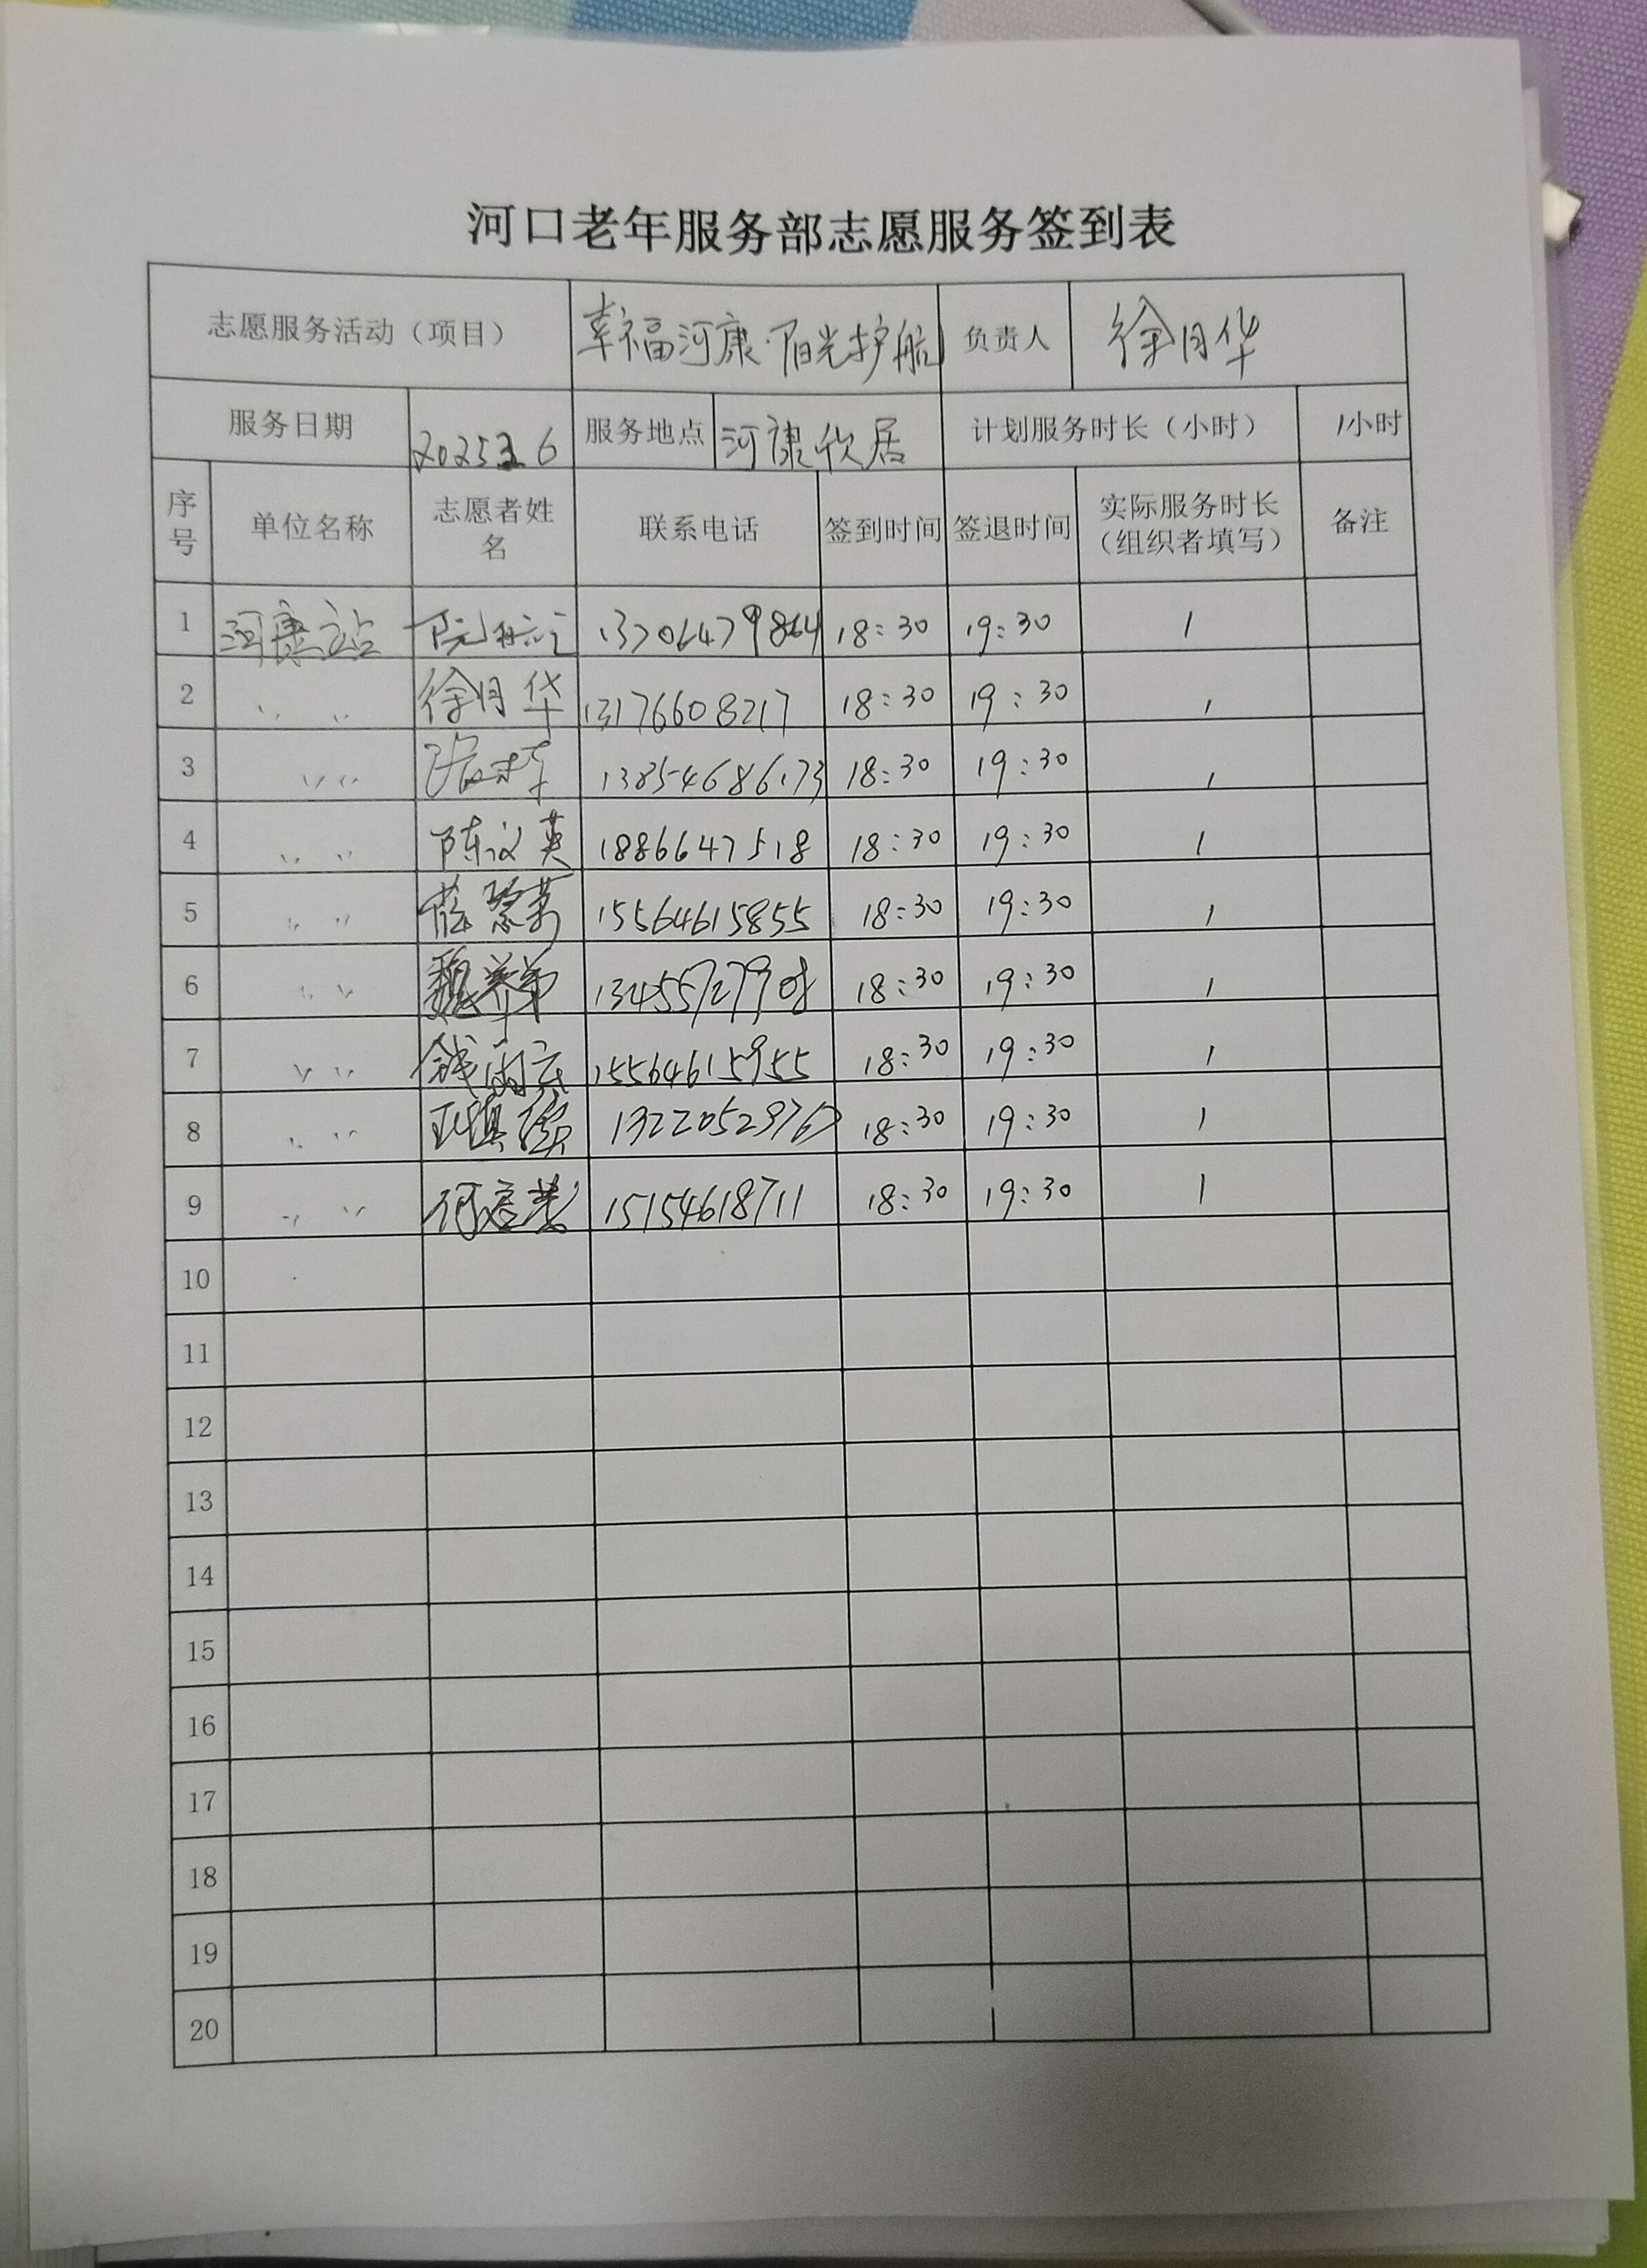 河口老年服务部志愿服务签到表
志愿服务活动（项目） 幸福河康·阳光护航 负责人 徐月华
服务日期 2025 6 服务地点 河康欣居 计划服务时长（小时） 1小时
序号 单位名称 志愿者姓名 联系电话 签到时间 签退时间 实际服务时长（组织者填写） 备注
1 河康站 13706479864 18:30 19:30 1
2 〃 〃 徐月华 13176608217 18:30 19:30 1
3 〃 〃 13854686173 18:30 19:30 1
4 〃 〃 陈议英 1886647518 18:30 19:30 1
5 〃 〃 薛 15564615855 18:30 19:30 1
6 〃 〃 魏 13455727908 18:30 19:30 1
7 〃 〃 钱 15564615955 18:30 19:30 1
8 〃 〃 18:30 19:30 1
9 〃 〃 何 15154618711 18:30 19:30 1
10
11
12
13
14
15
16
17
18
19
20